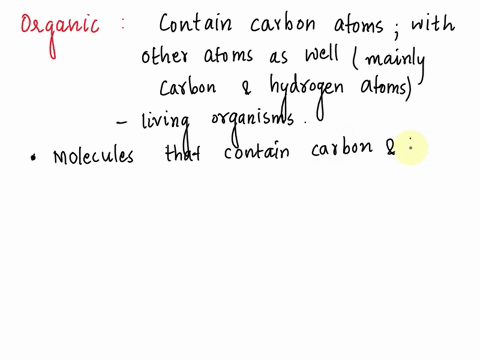 Organic : Contain carbon atoms ; with
other atoms as well (mainly
carbon & hydrogen atoms)
- living organisms.
• Molecules that contain carbon &